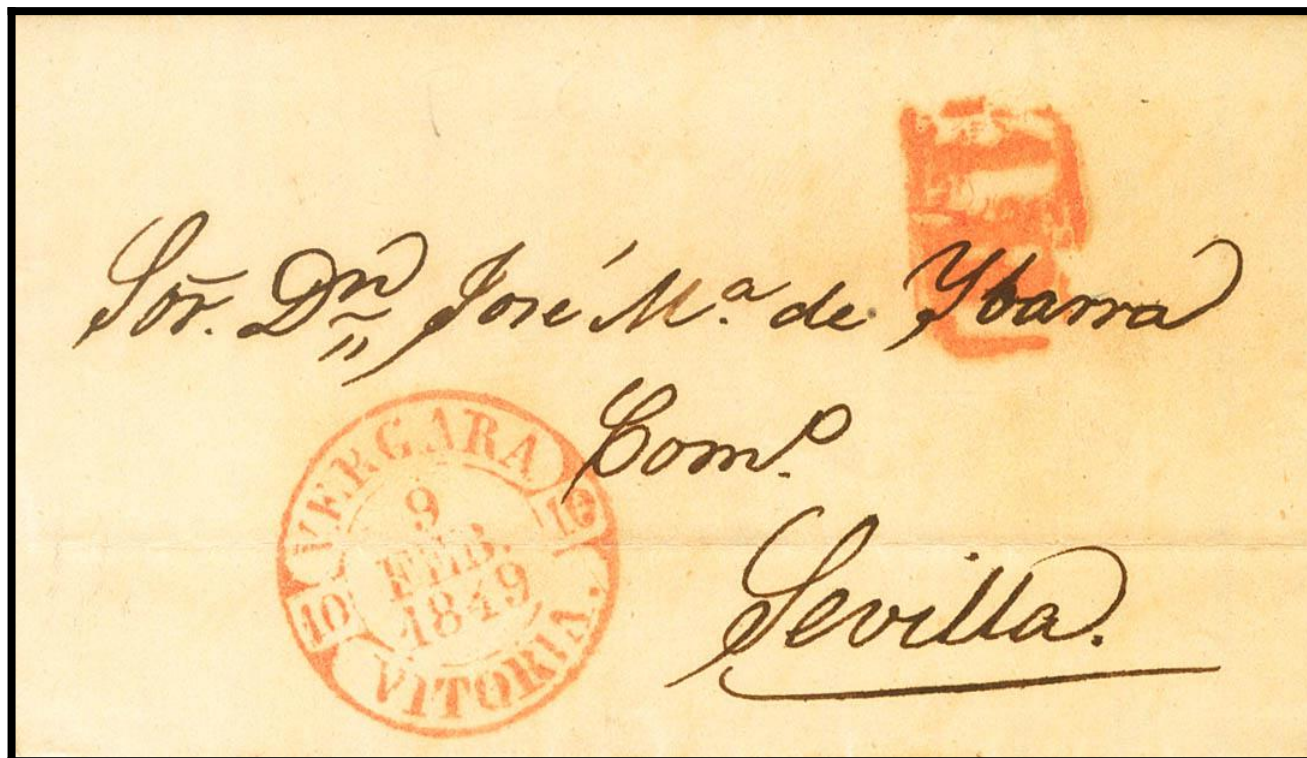 Sor̃. Dn José Mª. de Ybarra
Como.
Sevilla.
VERGARA
10 10
9
FEB.
1849
VITORIA.